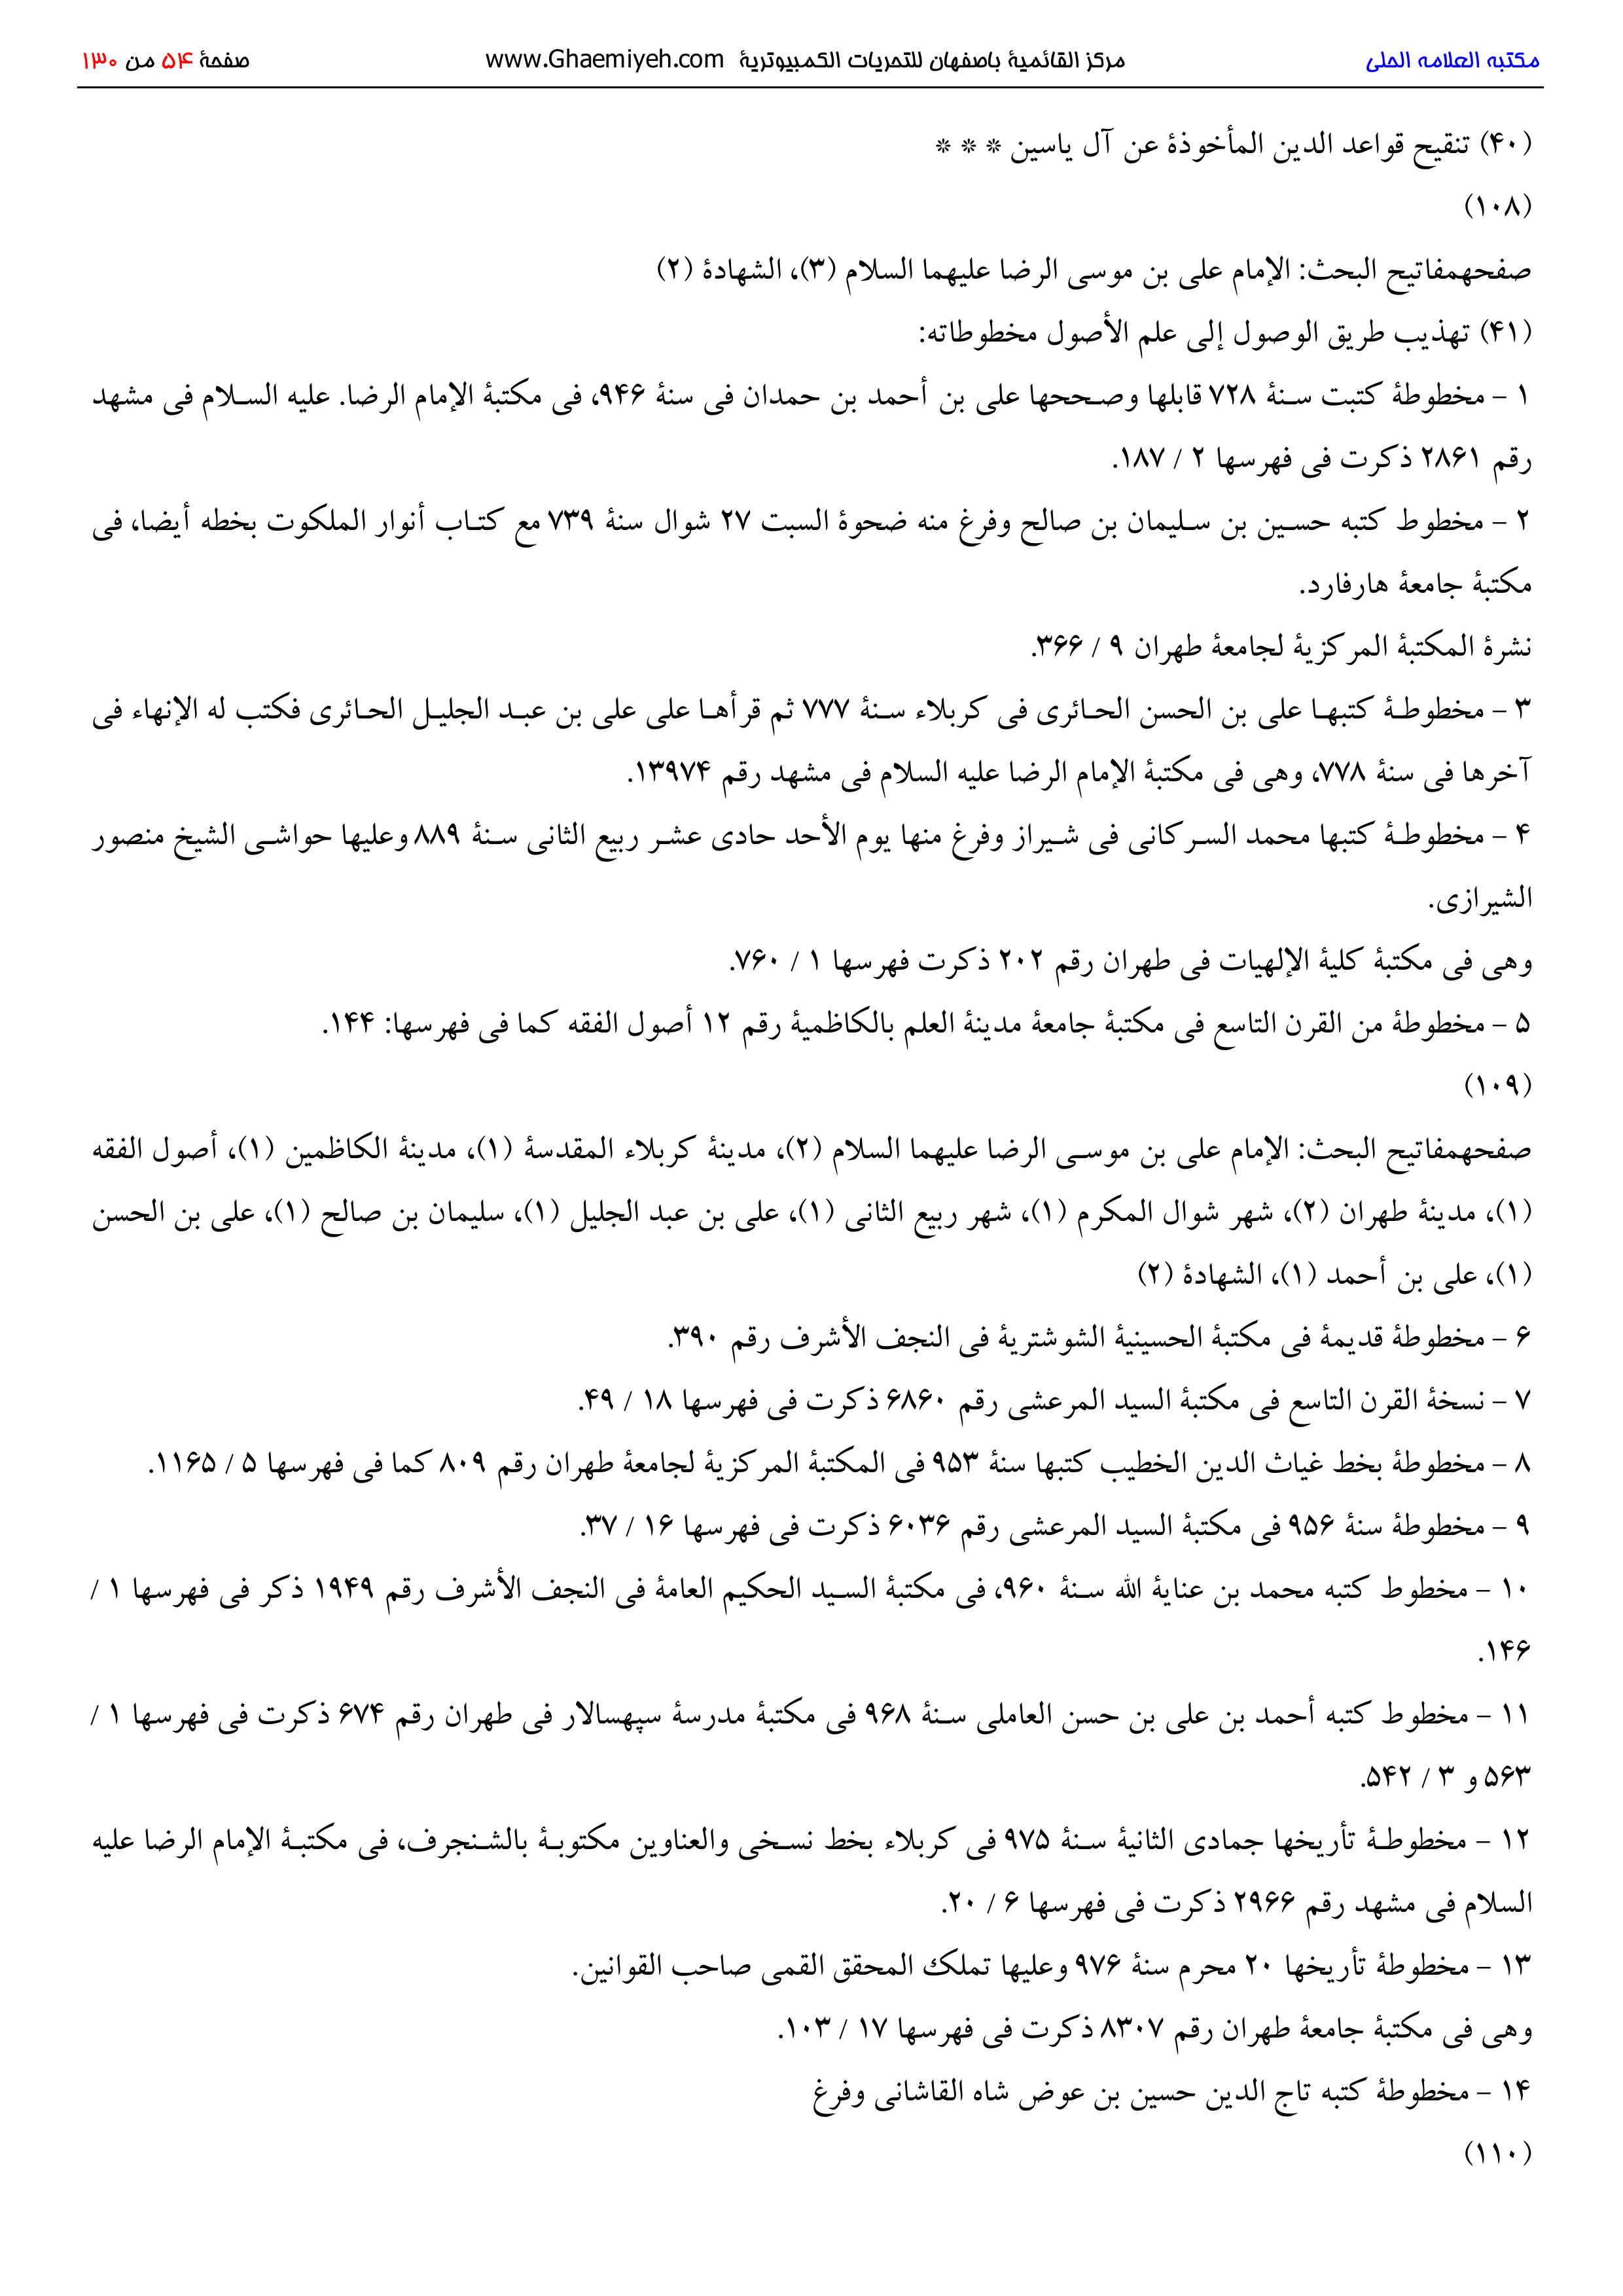 مكتبه العلامه الحلی    مركز القائمیة باصفهان للتحریات الكمبیوتریة www.Ghaemiyeh.com    صفحة ۵۴ من ۱۳۰
(۴۰) تنقیح قواعد الدین المأخوذة عن آل یاسین * * *
(۱۰۸)
صفحهمفاتیح البحث: الإمام علی بن موسی الرضا علیهما السلام (۳)، الشهادة (۲)
(۴۱) تهذیب طریق الوصول إلی علم الأصول مخطوطاته:
۱ – مخطوطة كتبت سنة ۷۲۸ قابلها وصححها علی بن أحمد بن حمدان فی سنة ۹۴۶، فی مكتبة الإمام الرضا. علیه السلام فی مشهد
رقم ۲۸۶۱ ذكرت فی فهرسها ۲ / ۱۸۷.
۲ – مخطوط كتبه حسین بن سلیمان بن صالح وفرغ منه ضحوة السبت ۲۷ شوال سنة ۷۳۹ مع كتاب أنوار الملكوت بخطه أیضا، فی
مكتبة جامعة هارفارد.
نشرة المكتبة المركزیة لجامعة طهران ۹ / ۳۶۶.
۳ – مخطوطة كتبها علی بن الحسن الحائری فی كربلاء سنة ۷۷۷ ثم قرأها علی علی بن عبد الجلیل الحائری فكتب له الإنهاء فی
آخرها فی سنة ۷۷۸، وهی فی مكتبة الإمام الرضا علیه السلام فی مشهد رقم ۱۳۹۷۴.
۴ – مخطوطة كتبها محمد السركانی فی شیراز وفرغ منها یوم الأحد حادی عشر ربیع الثانی سنة ۸۸۹ وعلیها حواشی الشیخ منصور
الشیرازی.
وهی فی مكتبة كلیة الإلهیات فی طهران رقم ۲۰۲ ذكرت فهرسها ۱ / ۷۶۰.
۵ – مخطوطة من القرن التاسع فی مكتبة جامعة مدینة العلم بالكاظمیة رقم ۱۲ أصول الفقه كما فی فهرسها: ۱۴۴.
(۱۰۹)
صفحهمفاتیح البحث: الإمام علی بن موسی الرضا علیهما السلام (۲)، مدینة كربلاء المقدسة (۱)، مدینة الكاظمین (۱)، أصول الفقه
(۱)، مدینة طهران (۲)، شهر شوال المكرم (۱)، شهر ربیع الثانی (۱)، علی بن عبد الجلیل (۱)، سلیمان بن صالح (۱)، علی بن الحسن
(۱)، علی بن أحمد (۱)، الشهادة (۲)
۶ – مخطوطة قدیمة فی مكتبة الحسینیة الشوشتریة فی النجف الأشرف رقم ۳۹۰.
۷ – نسخة القرن التاسع فی مكتبة السید المرعشی رقم ۶۸۶۰ ذكرت فی فهرسها ۱۸ / ۴۹.
۸ – مخطوطة بخط غیاث الدین الخطیب كتبها سنة ۹۵۳ فی المكتبة المركزیة لجامعة طهران رقم ۸۰۹ كما فی فهرسها ۵ / ۱۱۶۵.
۹ – مخطوطة سنة ۹۵۶ فی مكتبة السید المرعشی رقم ۶۰۳۶ ذكرت فی فهرسها ۱۶ / ۳۷.
۱۰ – مخطوط كتبه محمد بن عنایة الله سنة ۹۶۰، فی مكتبة السید الحكیم العامة فی النجف الأشرف رقم ۱۹۴۹ ذكر فی فهرسها ۱ /
۱۴۶.
۱۱ – مخطوط كتبه أحمد بن علی بن حسن العاملی سنة ۹۶۸ فی مكتبة مدرسة سپهسالار فی طهران رقم ۶۷۴ ذكرت فی فهرسها ۱ /
۵۶۳ و ۳ / ۵۴۲.
۱۲ – مخطوطة تأریخها جمادی الثانیة سنة ۹۷۵ فی كربلاء بخط نسخی والعناوین مكتوبة بالشنجرف، فی مكتبة الإمام الرضا علیه
السلام فی مشهد رقم ۲۹۶۶ ذكرت فی فهرسها ۶ / ۲۰.
۱۳ – مخطوطة تأریخها ۲۰ محرم سنة ۹۷۶ وعلیها تملك المحقق القمی صاحب القوانین.
وهی فی مكتبة جامعة طهران رقم ۸۳۰۷ ذكرت فی فهرسها ۱۷ / ۱۰۳.
۱۴ – مخطوطة كتبه تاج الدین حسین بن عوض شاه القاشانی وفرغ
(۱۱۰)